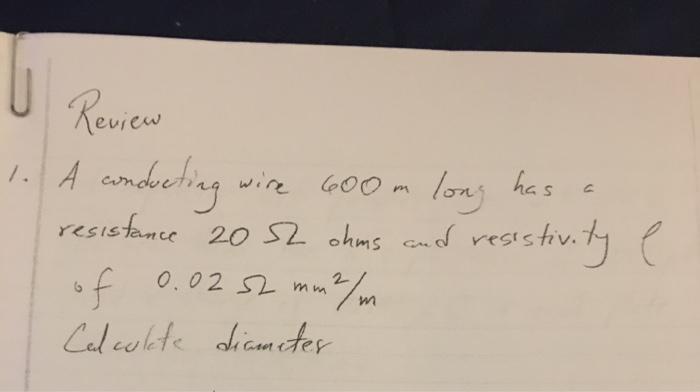 Review
1. A conducting wire 600 m long has a
resistance 20 Ω ohms and resistivity ρ
of 0.02 Ω mm²/m
Calculate diameter